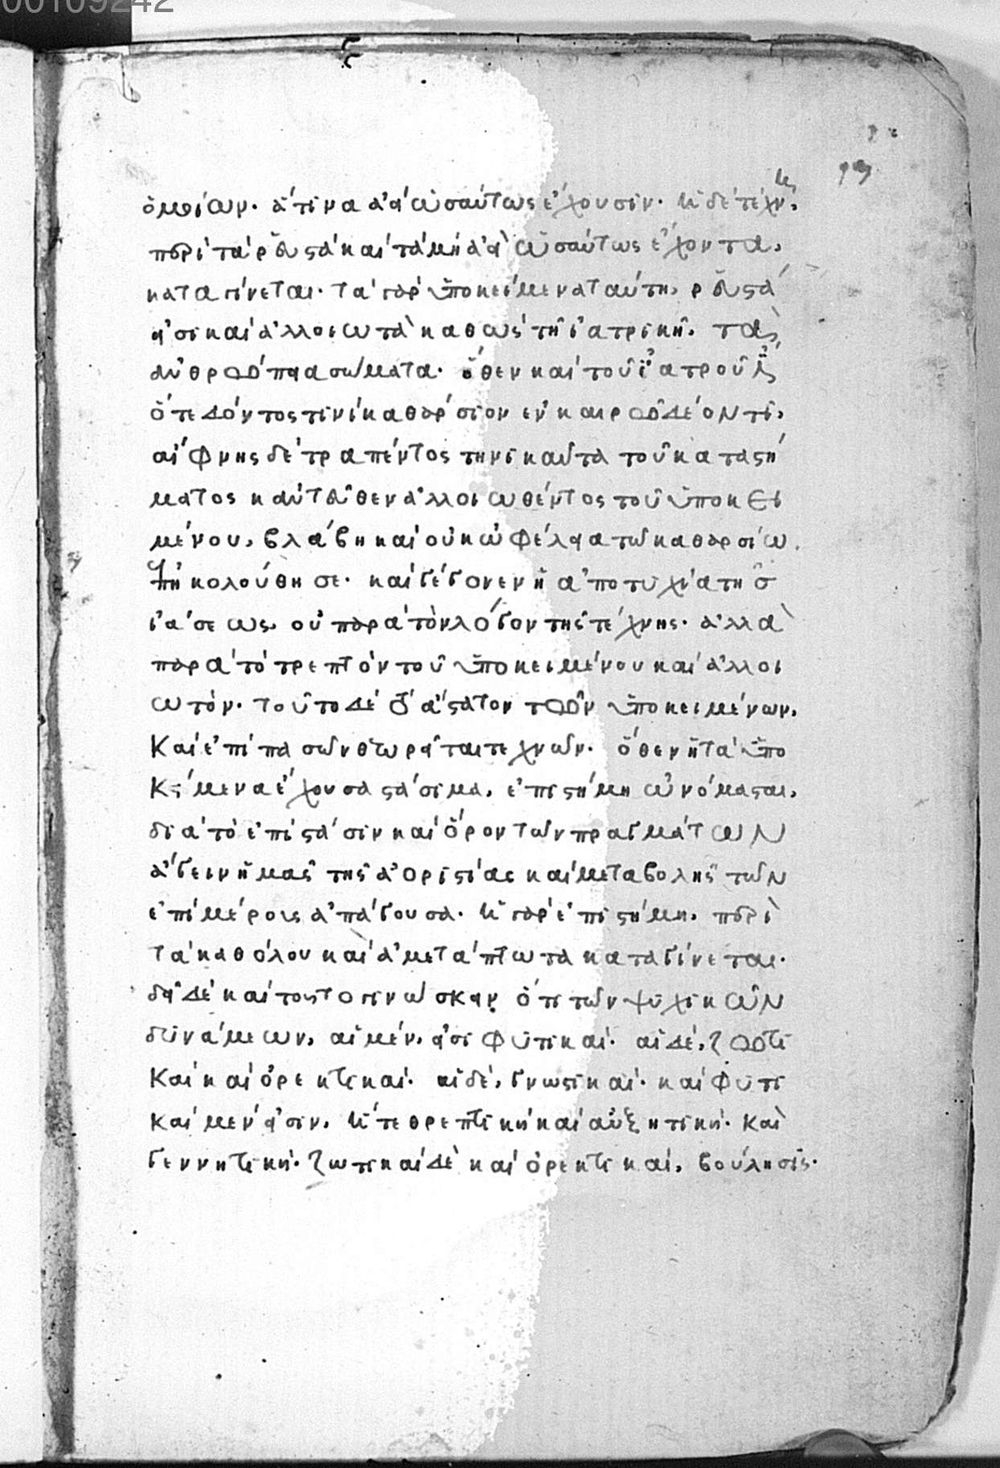 00109242
ὁμοίων. ἅτινα ἀεὶ ὡσαύτως ἔχουσιν. ἡ δὲ τέχνη,
περὶ τὰ ῥευστὰ καὶ τὰ μὴ ἀεὶ ὡσαύτως ἔχοντα,
καταγίνεται. τὰ γὰρ ὑποκείμενα ταύτη, ῥευστά
εἰσι καὶ ἀλλοιωτὰ καθὼς τῆ ἰατρικῆ, τὰ
ἀνθρώπεια σώματα. ὅθεν καὶ τοῦ ἰατροῦ
ὅτε δόντος τινὶ καθάρσιον ἐν καιρῶ δέοντι,
αἴφνης δὲ τραπέντος τηνικαῦτα τοῦ καταστή
ματος κἀντεῦθεν ἀλλοιωθέντος τοῦ ὑποκει
μένου, βλάβη καὶ οὐκ ὠφέλεια τῶ καθαρσίω
ἐπηκολούθησε. καὶ γέγονεν ἡ ἀποτυχία τῆς
ἰάσεως, οὐ παρὰ τὸν λόγον τῆς τέχνης. ἀλλὰ
παρὰ τὸ τρεπτὸν τοῦ ὑποκειμένου καὶ ἀλλοι
ωτόν. τοῦτο δὲ τὸ ἄστατον τῶν ὑποκειμένων,
καὶ ἐπὶ πασῶν θεωρεῖται τεχνῶν. ὅθεν ἡ τὰ ὑπο
κείμενα ἔχουσα στάσιμα, ἐπιστήμη ὠνόμασται,
διὰ τὸ ἐπὶ στάσιν καὶ ὅρον τῶν πραγμάτων
ἄγειν ἡμᾶς τῆς ἀοριστίας καὶ μεταβολῆς τῶν
ἐπὶ μέρους ἀπάγουσα. ἡ γὰρ ἐπιστήμη, περὶ
τὰ καθόλου καὶ ἀμετάπτωτα καταγίνεται.
δεῖ δὲ καὶ τοῦτο γινώσκειν ὅτι τῶν ψυχικῶν
δυνάμεων, αἱ μέν, εἰσι φυτικαί. αἱ δέ, ζωτι
καὶ καὶ ὀρεκτικαί. αἱ δέ, γνωστικαί. καὶ φυτι
καὶ μέν εἰσιν, ἥ τε θρεπτικὴ καὶ αὐξητική. καὶ
γεννητική. ζωτικαὶ δὲ καὶ ὀρεκτικαί, βούλησις.